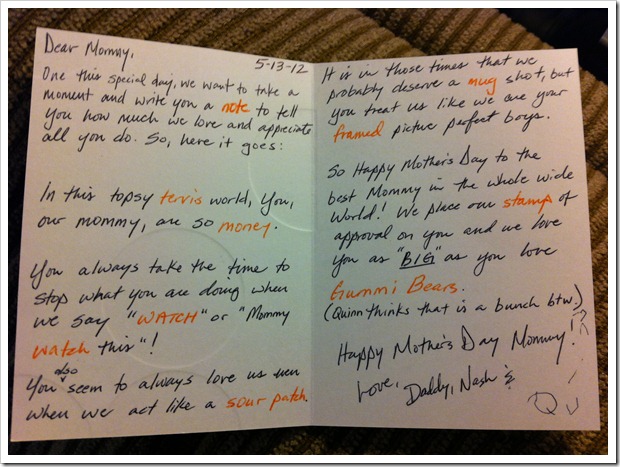 Dear Mommy,
5-13-12
One this special day, we want to take a
moment and write you a note to tell
you how much we love and appreciate
all you do. So, here it goes:
In this topsy tervis world, you,
our mommy, are so money.
You always take the time to
stop what you are doing when
we say "WATCH" or "Mommy
watch this"!
also
You ^ seem to always love us even
when we act like a sour patch.
It is in those times that we
probably deserve a mug shot, but
you treat us like we are your
framed picture perfect boys.
So Happy Mother's Day to the
best Mommy in the whole wide
World! We place our stamp of
approval on you and we love
you as "BIG" as you love
Gummi Bears.
(Quinn thinks that is a bunch btw.)
Happy Mother's Day Mommy!
Love,
Daddy, Nash &
QU